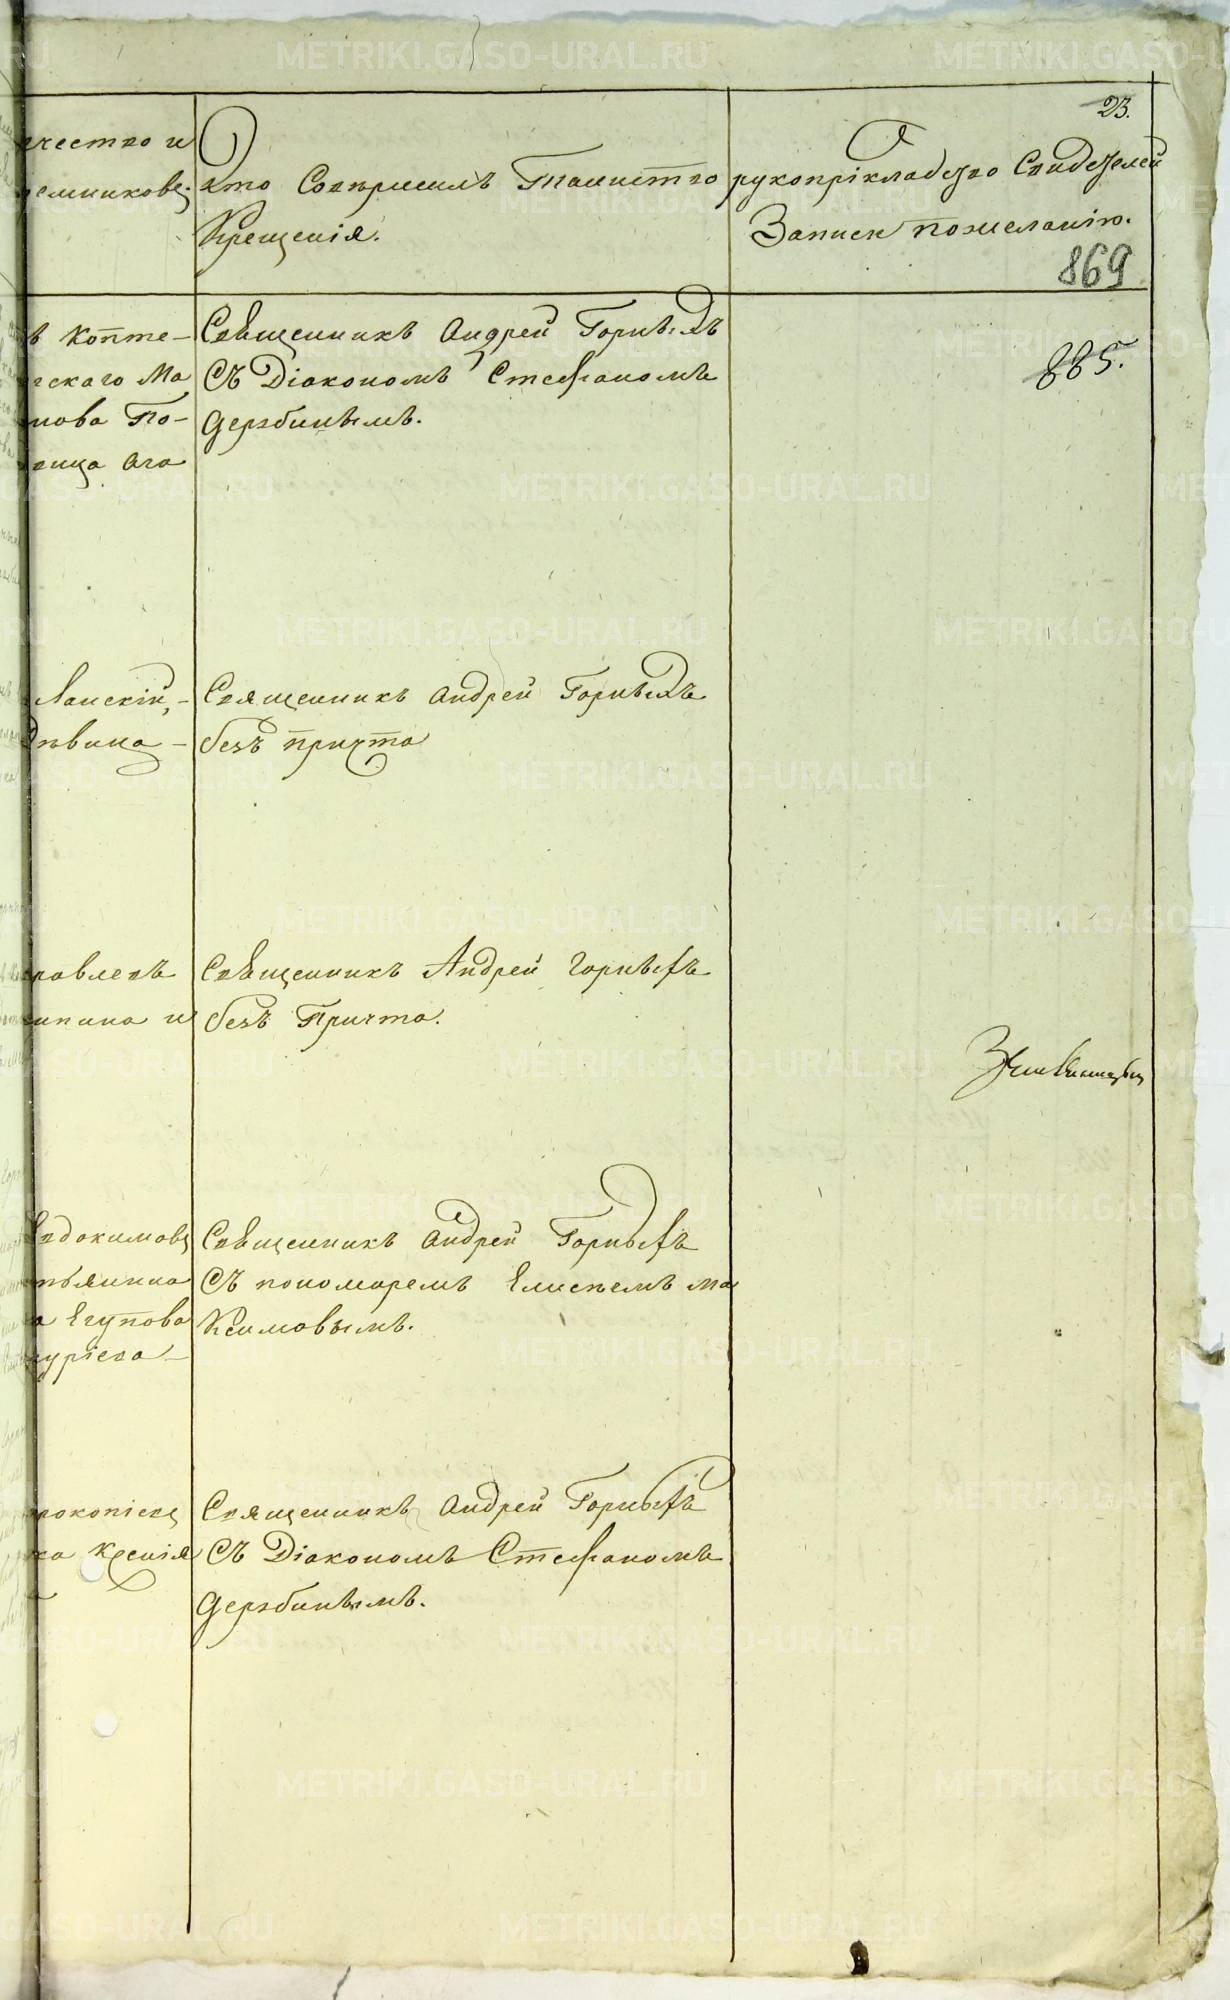 23.
ечество и
емниковъ.
Кто Совершилъ Таинство
Крещенія.
рукоприкладство Свидетелей
Записи пожеланію.
869
885.
въ Конте-
скаго Ма
нова По-
вица Ага
Священникъ Андрей Горныхъ
Съ Діакономъ Стефаномъ
Дерябинымъ.
Ланскій,-
Дѣвица -
Священникъ Андрей Горныхъ
безъ причта
ковлевъ
ипина и
Священникъ Андрей Горныхъ
безъ Причта.
Евдокимовъ
тьянина
а Егупова
гуріева -
Священникъ Андрей Горныхъ
Съ пономаремъ Елисеемъ Ма
Ксимовымъ.
рокопіевъ
ка Ксенія
Священникъ Андрей Горныхъ
Съ Діакономъ Стефаномъ
Дерябинымъ.
METRIKI.GASO-URAL.RU